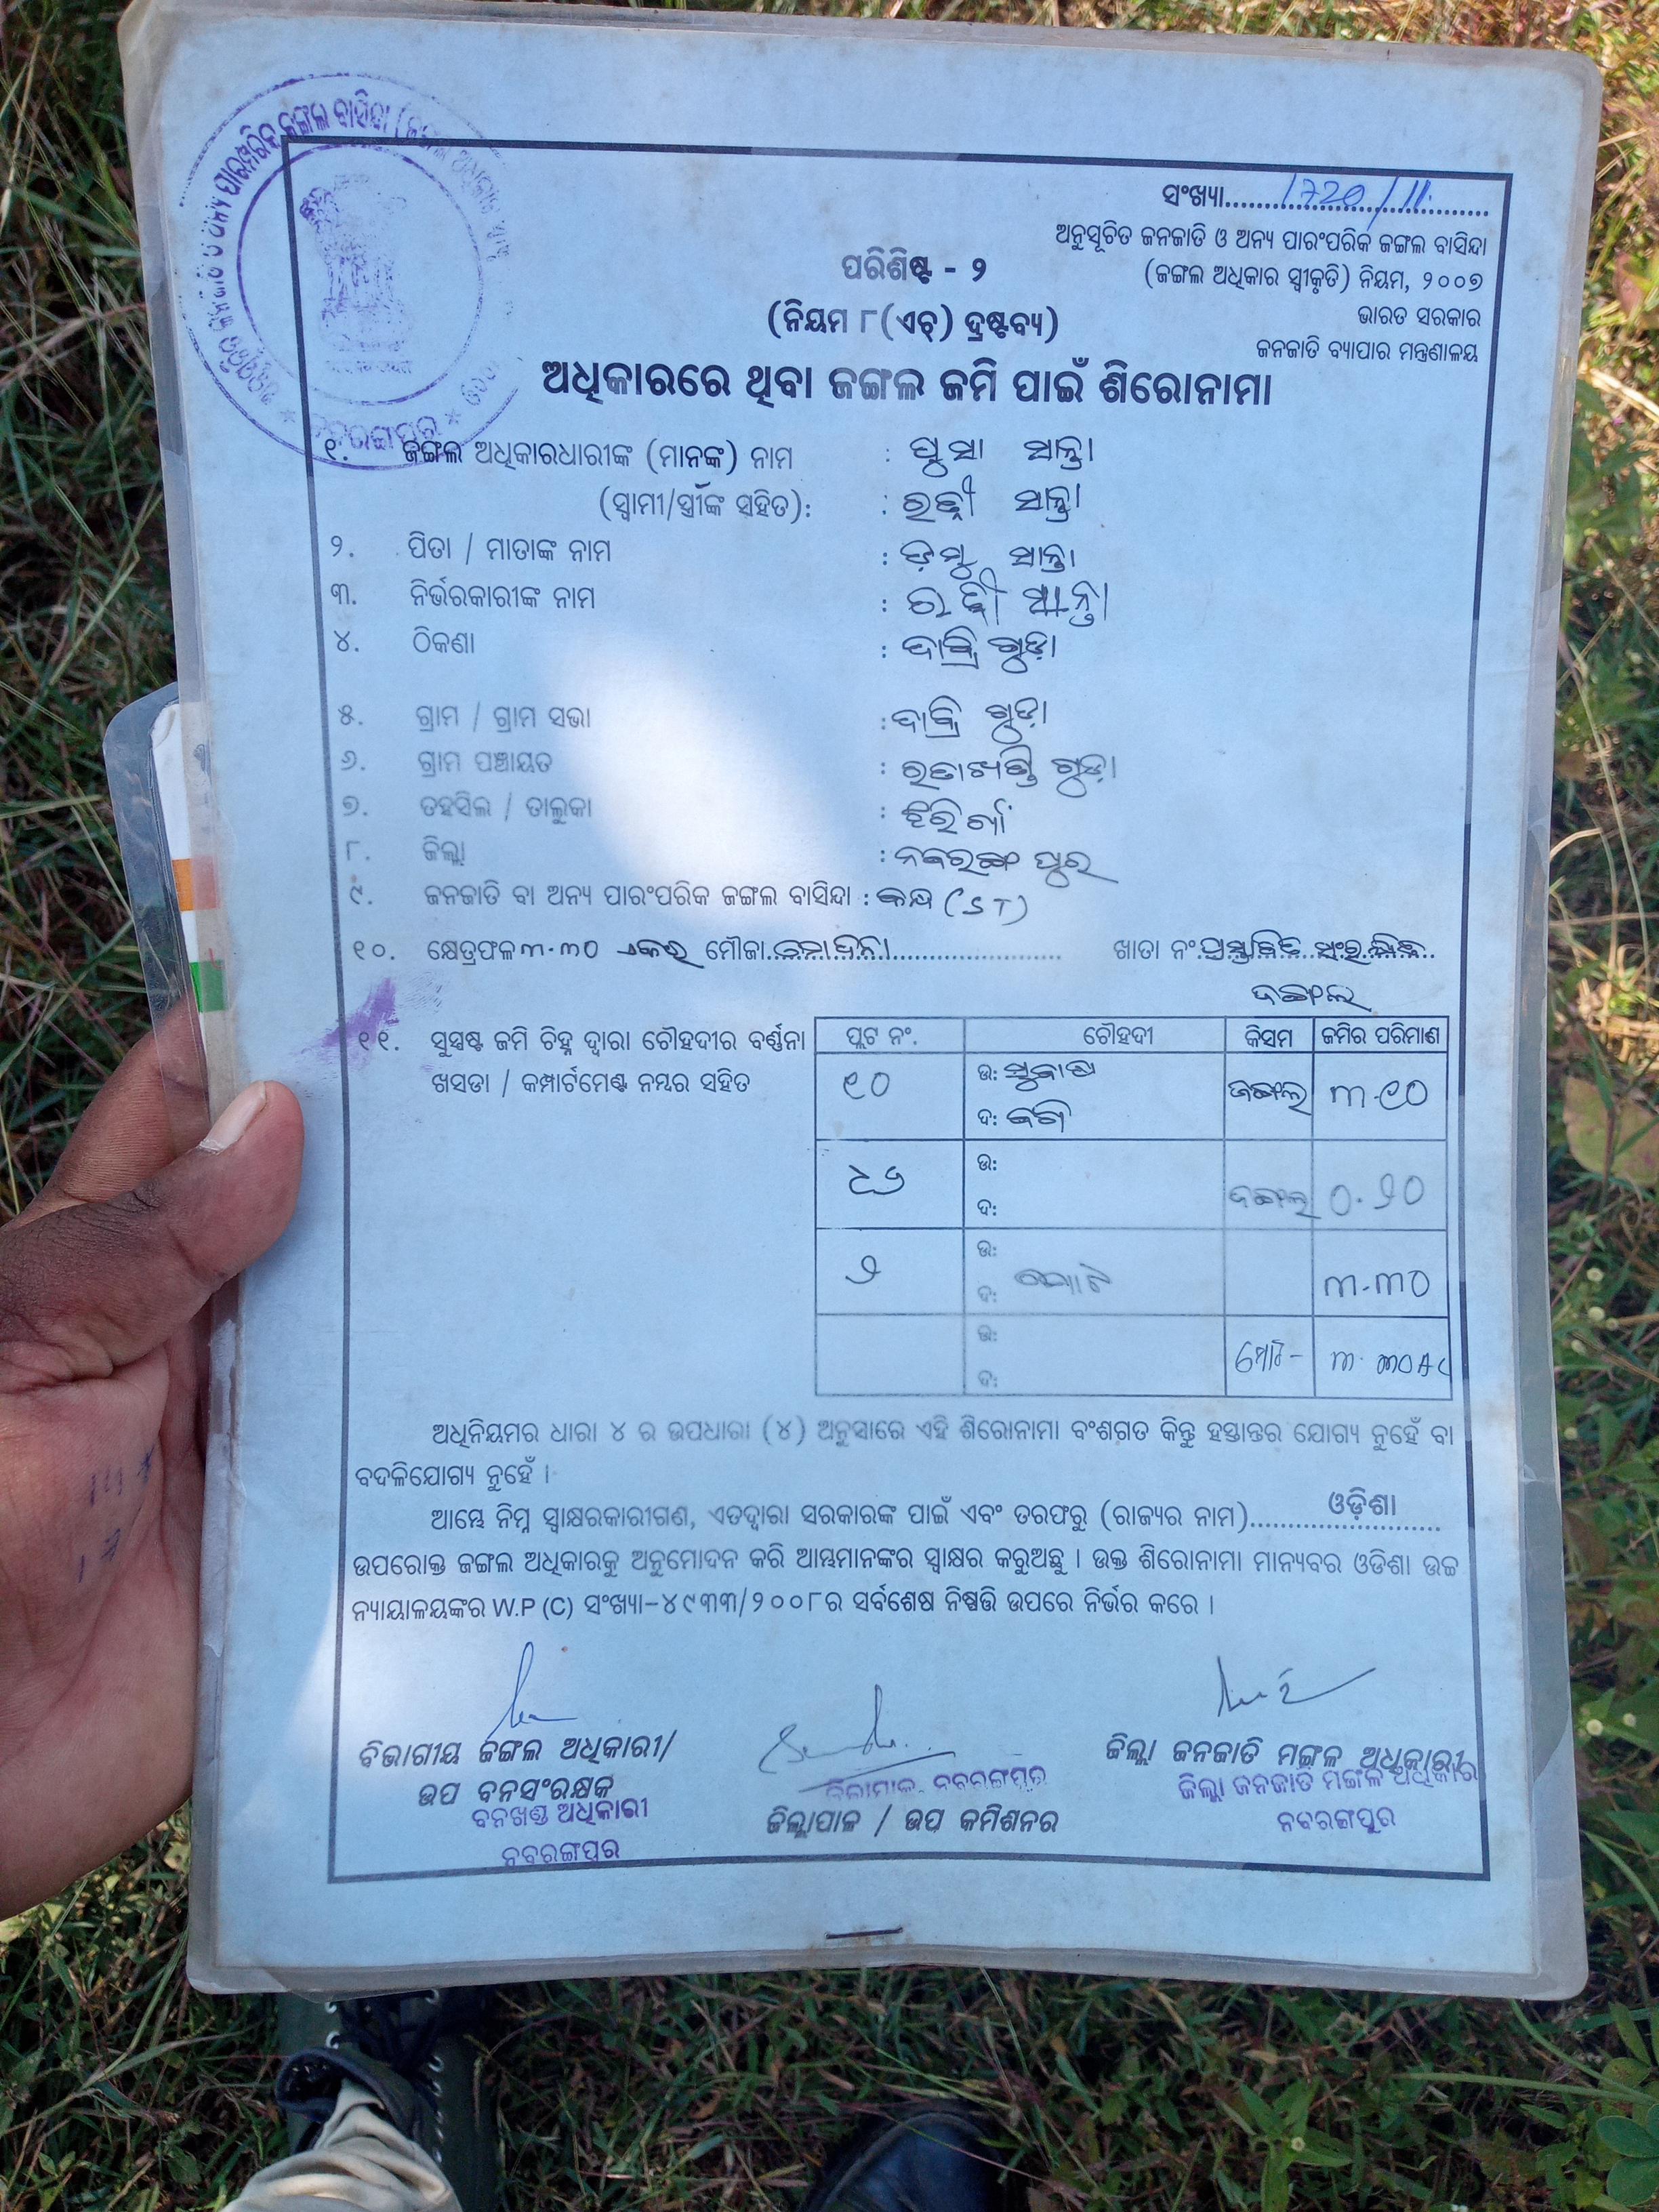 ସଂଖ୍ୟା.......1720/11
ଅନୁସୂଚିତ ଜନଜାତି ଓ ଅନ୍ୟ ପାରଂପରିକ ଜଙ୍ଗଲ ବାସିନ୍ଦା
(ଜଙ୍ଗଲ ଅଧିକାର ସ୍ୱୀକୃତି) ନିୟମ, ୨୦୦୭
ଭାରତ ସରକାର
ଜନଜାତି ବ୍ୟାପାର ମନ୍ତ୍ରଣାଳୟ
ପରିଶିଷ୍ଟ - ୨
(ନିୟମ ୮(ଏଚ୍) ଦ୍ରଷ୍ଟବ୍ୟ)
ଅଧିକାରରେ ଥିବା ଜଙ୍ଗଲ ଜମି ପାଇଁ ଶିରୋନାମା
୧. ଜଙ୍ଗଲ ଅଧିକାରଧାରୀଙ୍କ (ମାନଙ୍କ) ନାମ : ସାନ୍ତା
(ସ୍ୱାମୀ/ସ୍ତ୍ରୀଙ୍କ ସହିତ): : ସାନ୍ତା
୨. ପିତା / ମାତାଙ୍କ ନାମ : ସାନ୍ତା
୩. ନିର୍ଭରକାରୀଙ୍କ ନାମ : ସାନ୍ତା
୪. ଠିକଣା : ଗୁଡ଼ା
୫. ଗ୍ରାମ / ଗ୍ରାମ ସଭା : ଗୁଡ଼ା
୬. ଗ୍ରାମ ପଞ୍ଚାୟତ : ଗୁଡ଼ା
୭. ତହସିଲ / ତାଲୁକା : ଝରିଗାଁ
୮. ଜିଲ୍ଲା : ନବରଙ୍ଗପୁର
୯. ଜନଜାତି ବା ଅନ୍ୟ ପାରଂପରିକ ଜଙ୍ଗଲ ବାସିନ୍ଦା : କନ୍ଧ (ST)
୧୦. କ୍ଷେତ୍ରଫଳ ୩.୩୦ ଏକର ମୌଜା.......... ଖାତା ନଂ ପ୍ରସ୍ତାବିତ ସଂରକ୍ଷିତ
ଜଙ୍ଗଲ
୧୧. ସୁସ୍ପଷ୍ଟ ଜମି ଚିହ୍ନ ଦ୍ୱାରା ଚୌହଦୀର ବର୍ଣ୍ଣନା
ଖସଡା / କମ୍ପାର୍ଟମେଣ୍ଟ ନମ୍ବର ସହିତ
ପ୍ଲଟ ନଂ. ଚୌହଦୀ କିସମ ଜମିର ପରିମାଣ
୧୦ ଉ: ଦ: ଜଙ୍ଗଲ ୩.୧୦
ଉ: ଦ: ଜଙ୍ଗଲ ୦.୨୦
୨ ଉ: ଦ: ୩.୩୦
ଉ: ଦ: ମୋଟ- ୩.୩୦ AC
ଅଧିନିୟମର ଧାରା ୪ ର ଉପଧାରା (୪) ଅନୁସାରେ ଏହି ଶିରୋନାମା ବଂଶଗତ କିନ୍ତୁ ହସ୍ତାନ୍ତର ଯୋଗ୍ୟ ନୁହେଁ ବା
ବଦଳିଯୋଗ୍ୟ ନୁହେଁ ।
ଆମ୍ଭେ ନିମ୍ନ ସ୍ୱାକ୍ଷରକାରୀଗଣ, ଏତଦ୍ୱାରା ସରକାରଙ୍କ ପାଇଁ ଏବଂ ତରଫରୁ (ରାଜ୍ୟର ନାମ)..........ଓଡ଼ିଶା
ଉପରୋକ୍ତ ଜଙ୍ଗଲ ଅଧିକାରକୁ ଅନୁମୋଦନ କରି ଆମ୍ଭମାନଙ୍କର ସ୍ୱାକ୍ଷର କରୁଅଛୁ । ଉକ୍ତ ଶିରୋନାମା ମାନ୍ୟବର ଓଡିଶା ଉଚ୍ଚ
ନ୍ୟାୟାଳୟଙ୍କର W.P (C) ସଂଖ୍ୟା-୪୯୩୩/୨୦୦୮ର ସର୍ବଶେଷ ନିଷ୍ପତ୍ତି ଉପରେ ନିର୍ଭର କରେ ।
ବିଭାଗୀୟ ଜଙ୍ଗଲ ଅଧିକାରୀ/
ଉପ ବନସଂରକ୍ଷକ
ବନଖଣ୍ଡ ଅଧିକାରୀ
ନବରଙ୍ଗପୁର
ଜିଲ୍ଲାପାଳ, ନବରଙ୍ଗପୁର
ଜିଲ୍ଲାପାଳ / ଉପ କମିଶନର
ଜିଲ୍ଲା ଜନଜାତି ମଙ୍ଗଳ ଅଧିକାରୀ
ଜିଲ୍ଲା ଜନଜାତି ମଙ୍ଗଳ ଅଧିକାରୀ
ନବରଙ୍ଗପୁର